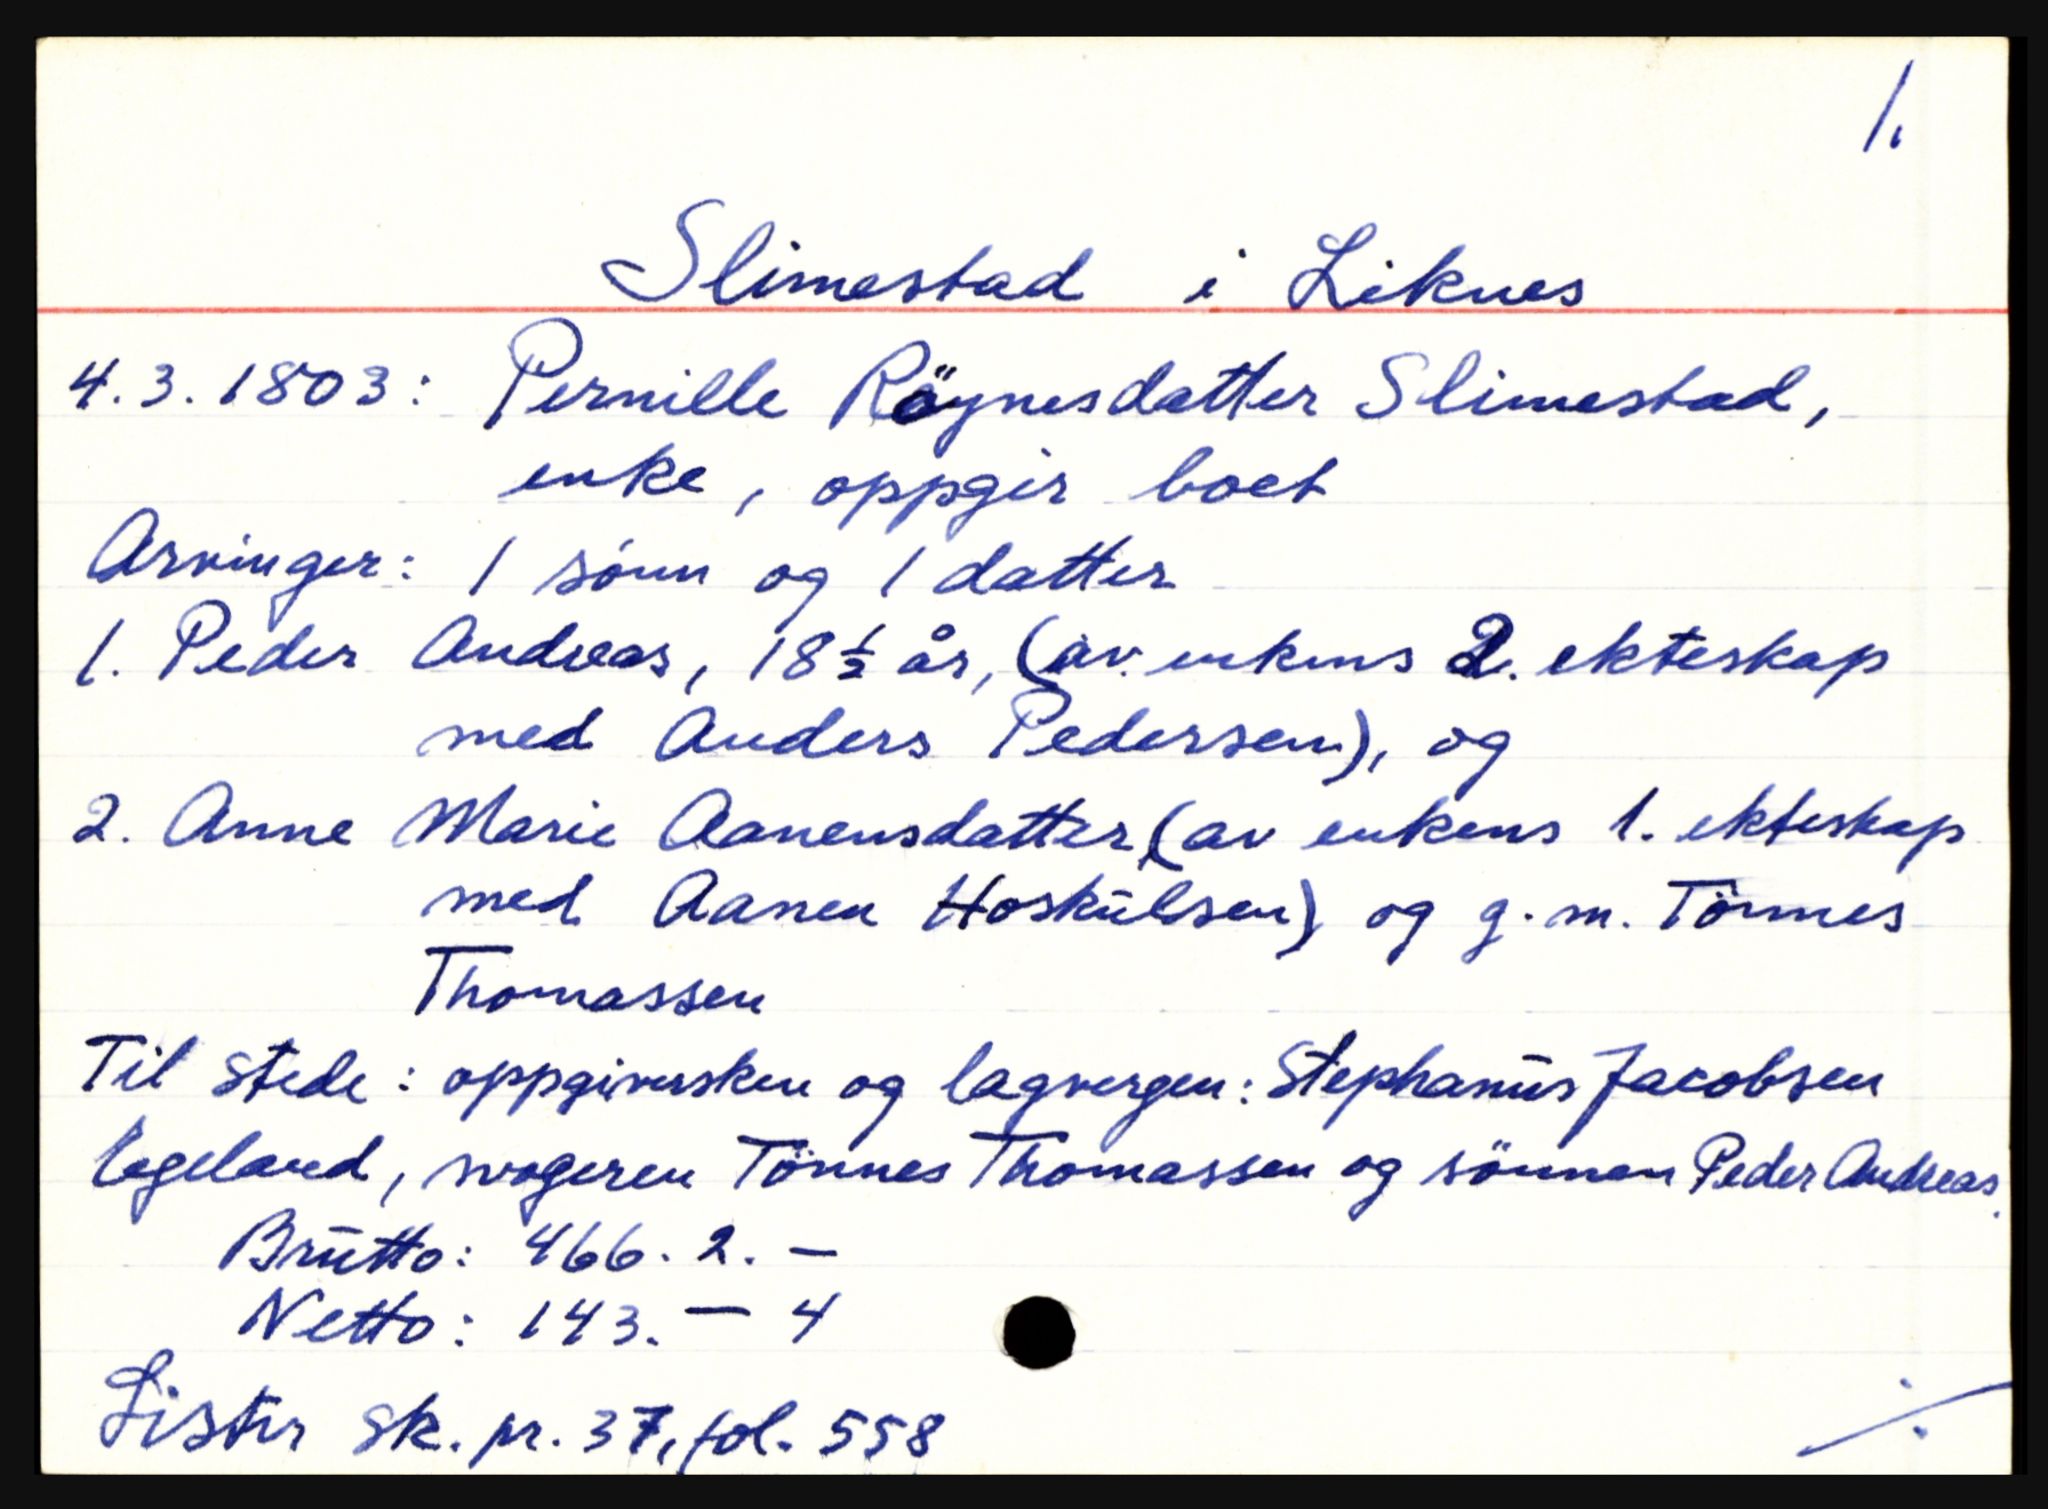 1.
Slimestad i Liknes
4.3.1803: Pernille Röynesdatter Slimestad,
enke, oppgir boet
Arvinger: 1 sönn og 1 datter
1. Peder Andreas, 18 1/2 år, (av enkens 2. ekteskap
med Anders Pedersen), og
2. Anne Marie Aanensdatter (av enkens 1. ekteskap
med Aanen Hoskulsen) og g.m. Tönnes
Thomassen
Til stede: oppgiversken og lagvergen: Stephanus Jacobsen
Egeland, svogeren Tönnes Thomassen og sönnen Peder Andreas.
Brutto: 466. 2. —
Netto: 143. — 4
Lister sk. pr. 37, fol. 558
./.